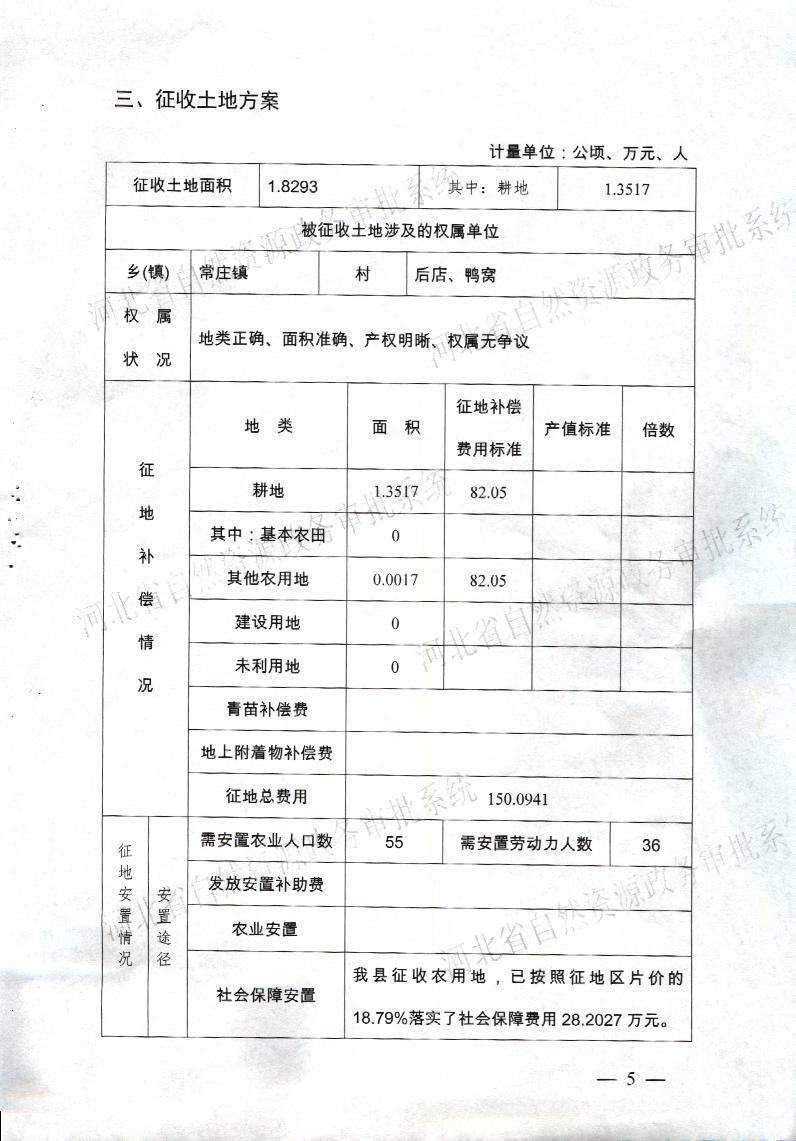 三、征收土地方案
计量单位：公顷、万元、人
征收土地面积 1.8293 其中：耕地 1.3517
被征收土地涉及的权属单位
乡(镇) 常庄镇 村 后店、鸭窝
权属状况 地类正确、面积准确、产权明晰、权属无争议
征地补偿情况
地类 面积 征地补偿费用标准 产值标准 倍数
耕地 1.3517 82.05
其中：基本农田 0
其他农用地 0.0017 82.05
建设用地 0
未利用地 0
青苗补偿费
地上附着物补偿费
征地总费用 150.0941
征地安置情况
安置途径
需安置农业人口数 55 需安置劳动力人数 36
发放安置补助费
农业安置
社会保障安置
我县征收农用地，已按照征地区片价的
18.79%落实了社会保障费用28.2027万元。
— 5 —
河北省自然资源政务审批系统
河北省自然资源政务审批系统
河北省自然资源政务审批系统
河北省自然资源政务审批系统
河北省自然资源政务审批系统
河北省自然资源政务审批系